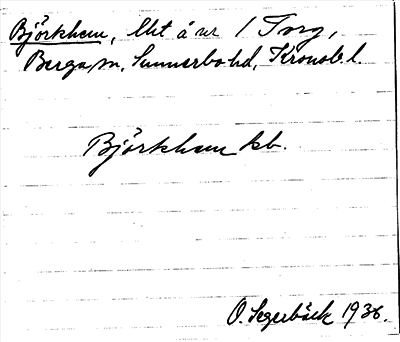 Björkhem, lht å nr 1 Torg,
Berga sn, Sunnerbo hd, Kronob. l.
Björkhem kb.
O. Segerbäck 1936.